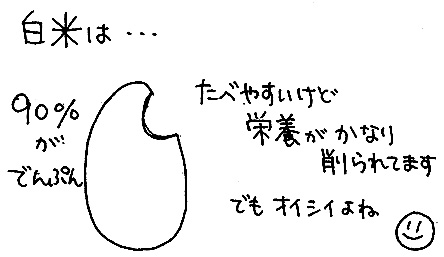 白米は…
90%
が
でんぷん
たべやすいけど
栄養がかなり
削られてます
でもオイシイよね